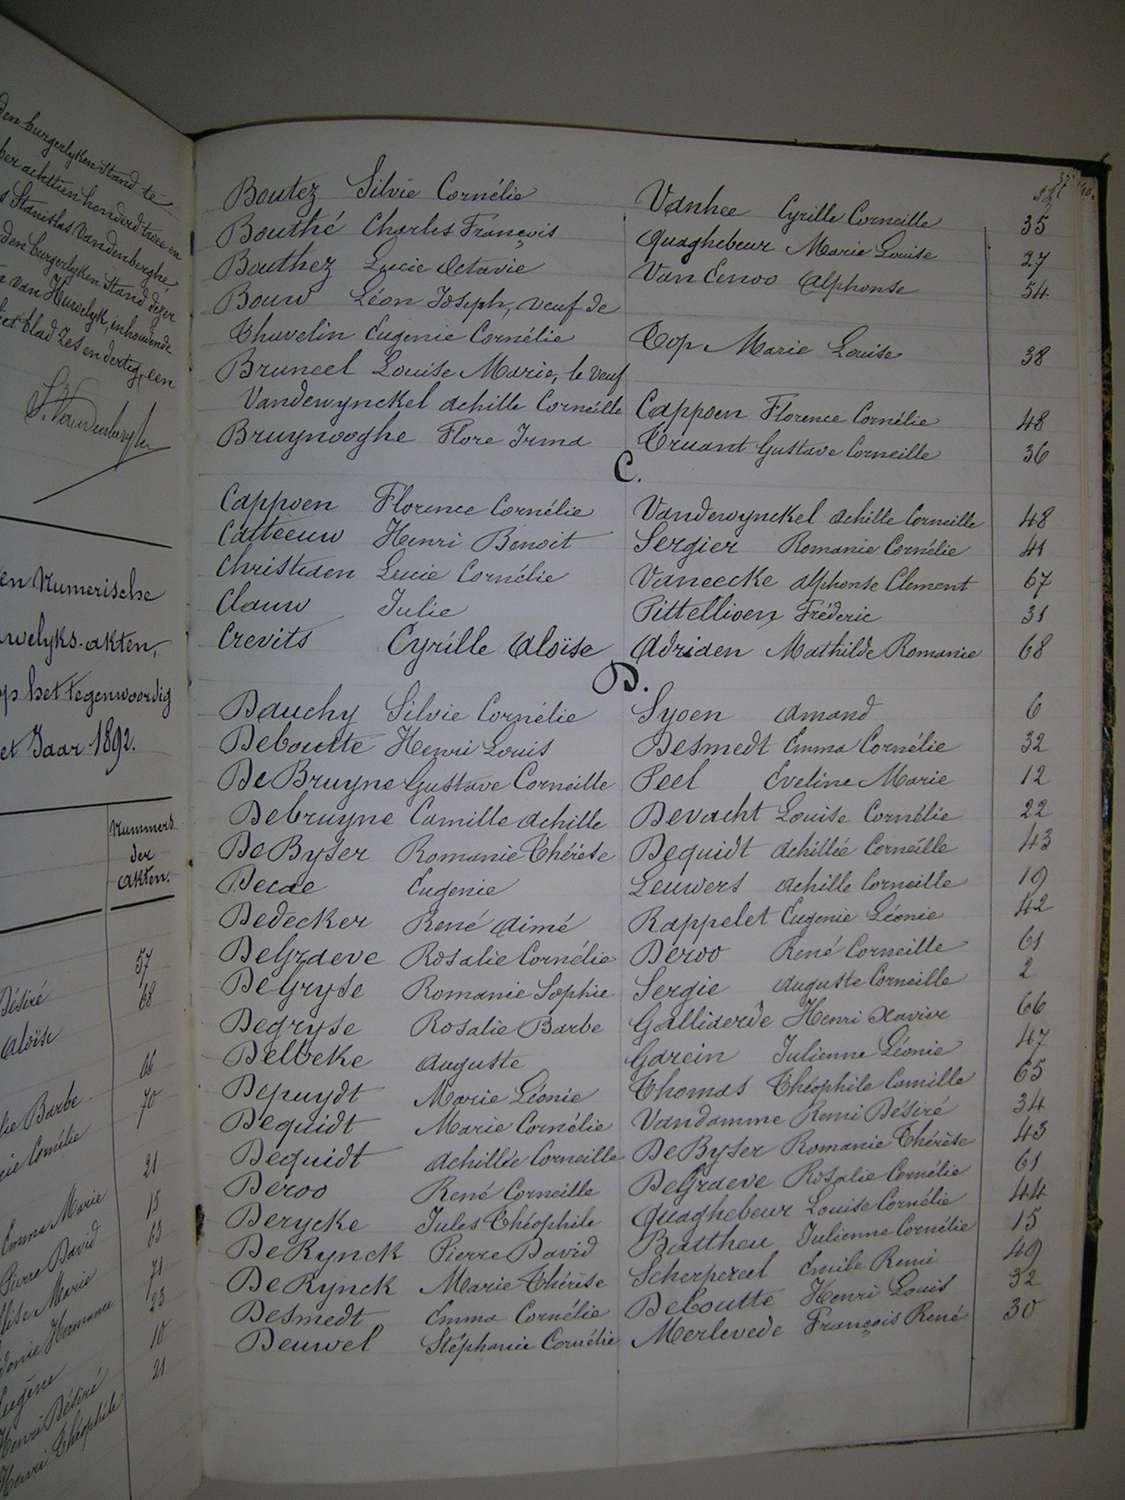 den burgerlyken Stand te
ber achttien honderd twee en
s Stanislas Vandenberghe
den burgerlyken Stand dezer
van Huwelyk, inhoudende
het blad zes en dertig, een
S. Vandenberghe
en Numerische
uwelyks-akten,
op het tegenwoordig
et Jaar 1892.
Nummers
der
akten.
57
Désiré 68
Aloïse
66
lie Barbe 70
ie Cornélie
21
Emma Marie 15
Pierre David 63
Elise Marie 71
onie Hermance 23
Eugène 10
Henri Désiré 21
Henri Théophile
37
Boutez Silvie Cornélie Vanhee Cyrille Corneille 35
Bouthé Charles François Quaghebeur Marie Louise 27
Bouthez Lucie Octavie Van Eenoo Alphonse 54
Bouw Léon Joseph, veuf de
Thuvelin Eugenie Cornélie Top Marie Louise 38
Bruneel Louise Marie, le veuf
Vandewynckel Achille Corneille Cappoen Florence Cornélie 48
Bruynooghe Flore Irma Truant Gustave Corneille 36
C.
Cappoen Florence Cornélie Vandewynckel Achille Corneille 48
Catteeuw Henri Benoit Sergier Romanie Cornélie 41
Christiaen Lucie Cornélie Vaneecke Alphonse Clement 67
Clauw Julie Pittellioen Fréderic 31
Crevits Cyrille Aloïse Adriaen Mathilde Romanie 68
D.
Dauchy Silvie Cornélie Syoen Amand 6
Deboutte Henri Louis Desmedt Emma Cornélie 32
De Bruyne Gustave Corneille Peel Eveline Marie 12
Debruyne Camille Achille Devacht Louise Cornélie 22
De Byser Romanie Thérèse Dequidt Achillée Corneille 43
Decae Eugenie Leuwers Achille Corneille 19
Dedecker René Aimé Rappelet Eugenie Léonie 42
DeGraeve Rosalie Cornélie Deroo René Corneille 61
DeGryse Romanie Sophie Sergie Auguste Corneille 2
Degryse Rosalie Barbe Galliaerde Henri Xavier 66
Delbeke Auguste Garein Julienne Léonie 47
Depuydt Marie Léonie Thomas Théophile Camille 65
Dequidt Marie Cornélie Vandamme Remi Désiré 34
Dequidt Achillée Corneille De Byser Romanie Thérèse 43
Deroo René Corneille DeGraeve Rosalie Cornélie 61
Derycke Jules Théophile Quaghebeur Louise Cornélie 44
De Rynck Pierre David Battheu Julienne Cornélie 15
De Rynck Marie Thérèse Scherpereel Emile Remi 49
Desmedt Emma Cornélie Deboutte Henri Louis 32
Deuwel Stéphanie Cornélie Merlevede François René 30